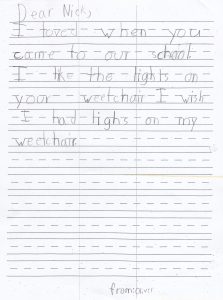 Dear Nick,
I loved when you
came to our school
I like the lights on
your weelchair I wish
I had lighs on my
weelchair
from: